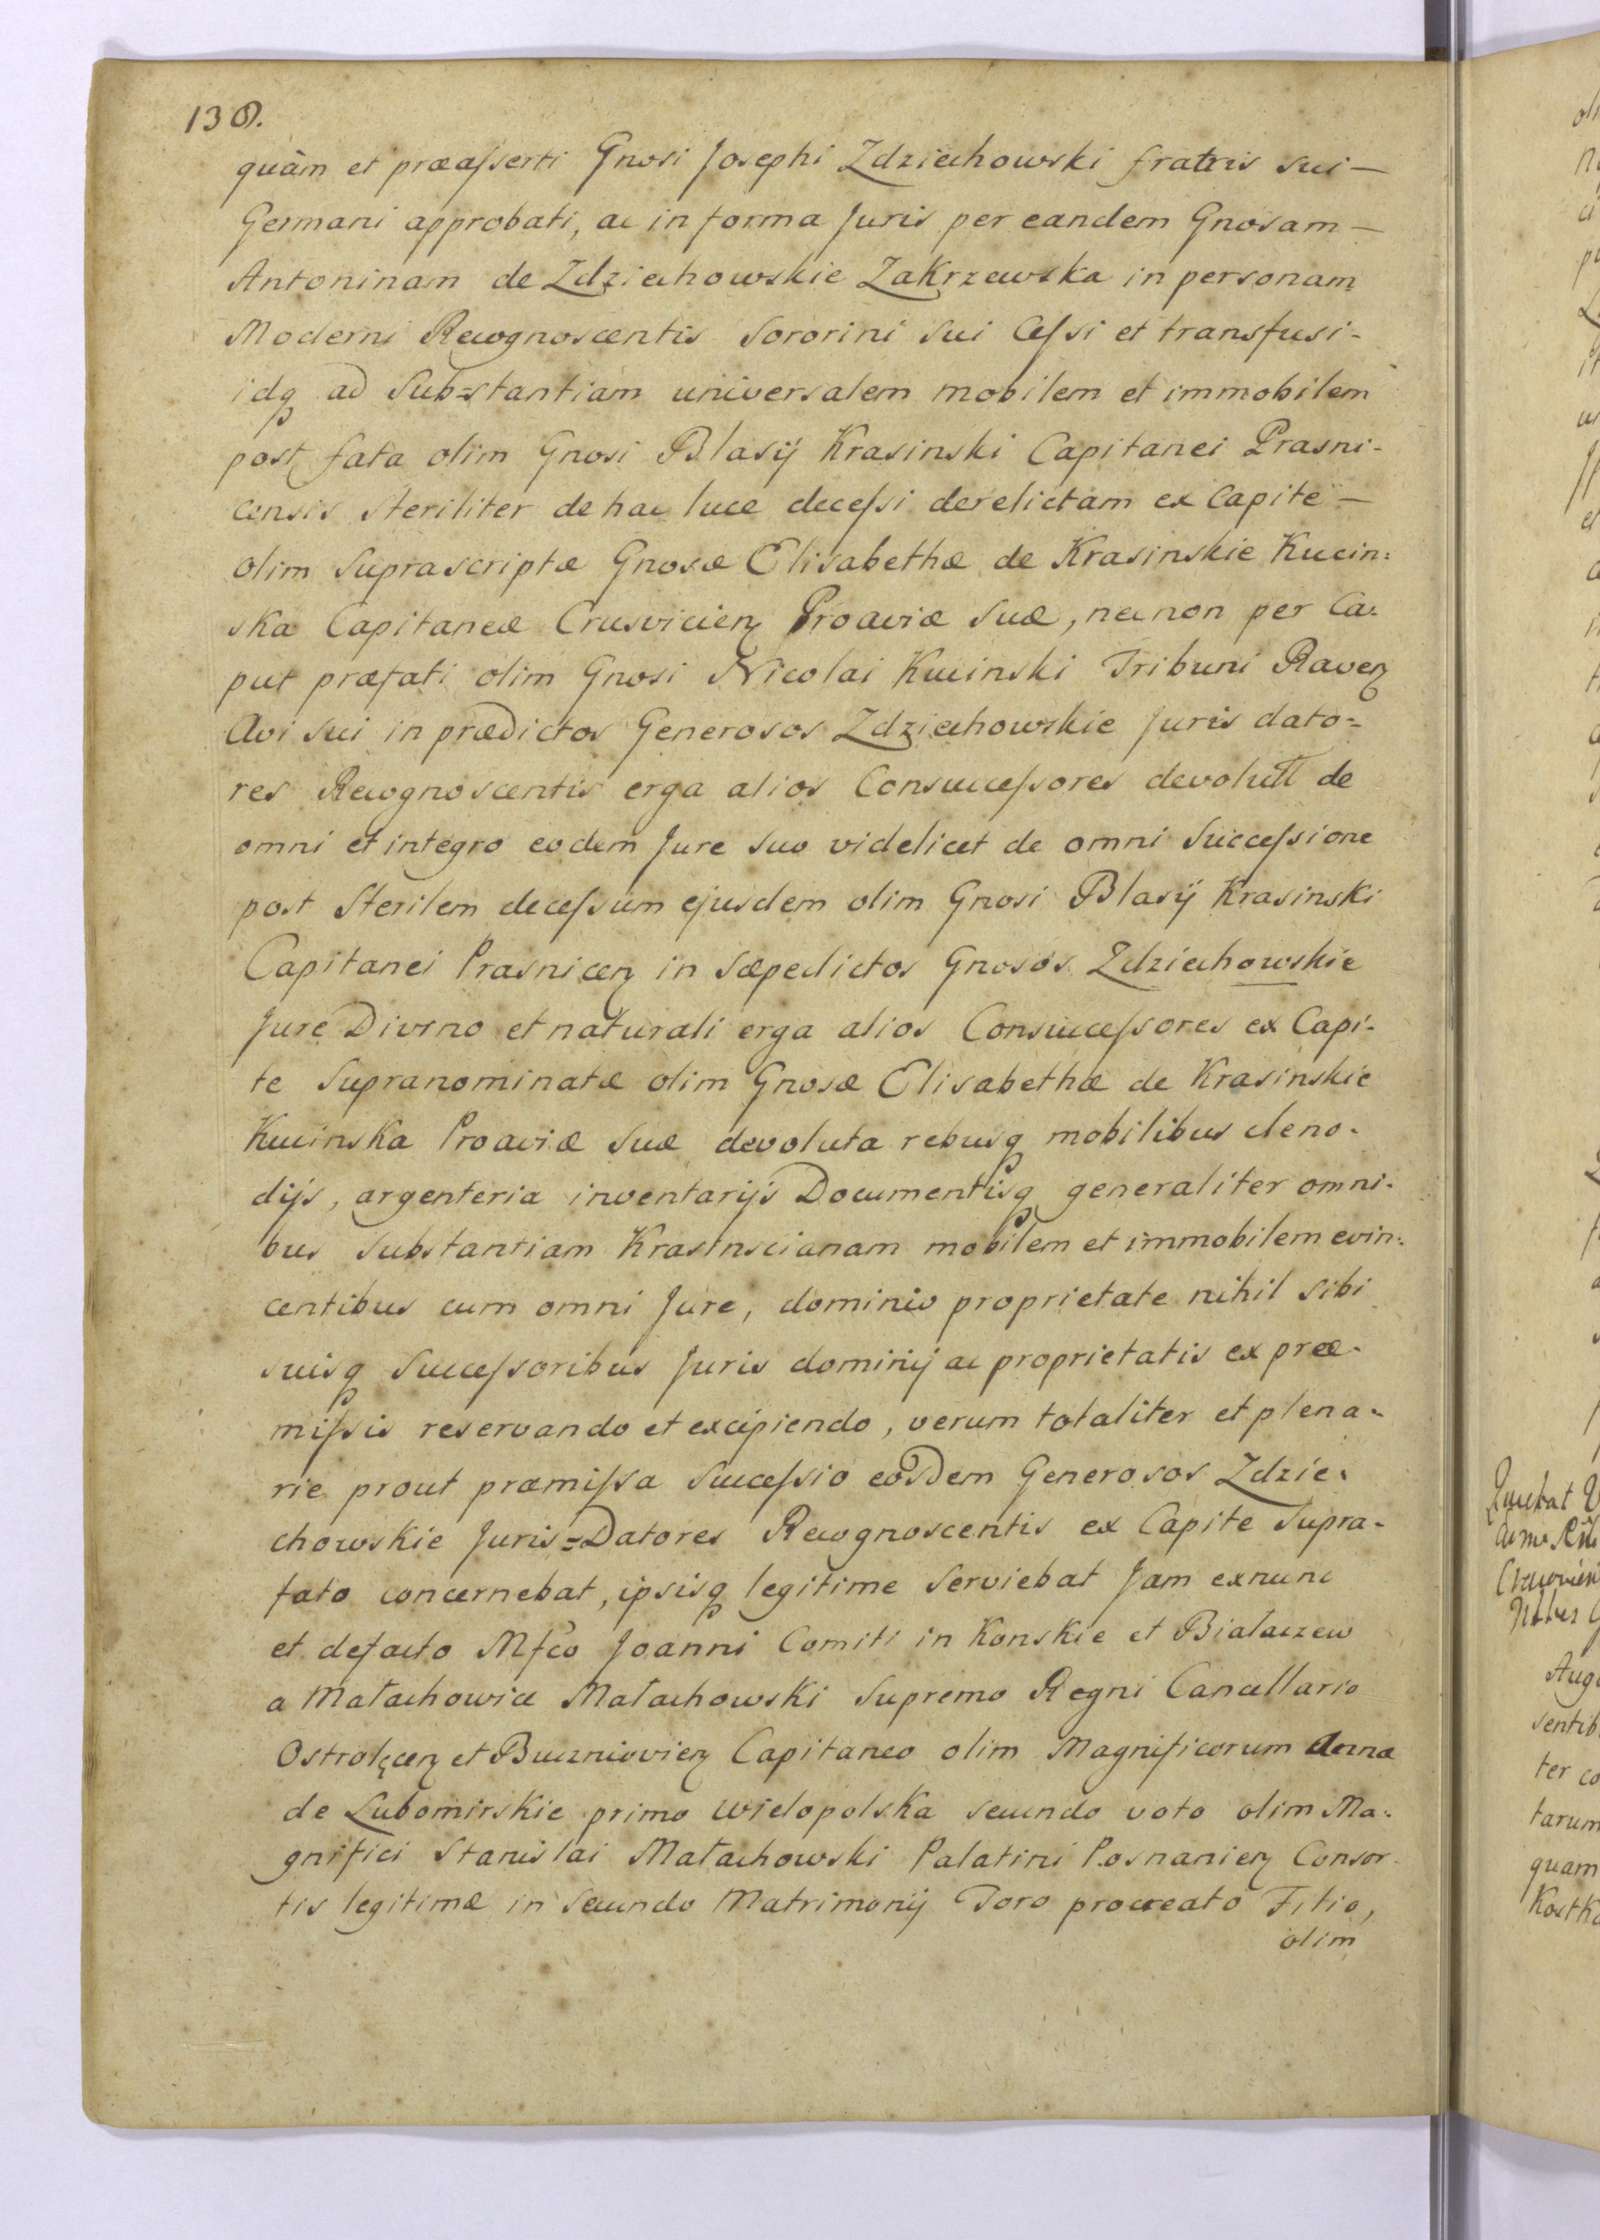 138.
quàm et præasserti Gnosi Josephi Zdziechowski fratris sui —
Germani approbati, ac in forma Juris per eandem Gnosam —
Antoninam de Zdziechowskie Zakrzewska in personam
Moderni Recognoscentis Sororini sui Cessi et transfusi-
idq ad Sub=stantiam universalem mobilem et immobilem
post fata olim Gnosi Blasij Krasinski Capitanei Prasni-
censis steriliter de hac luce decessi derelictam ex Capite —
olim Suprascriptæ Gnosæ Elisabethæ de Krasinskie Kucin:
ska Capitaneæ Crusvicien Proaviæ suæ, nec non per Ca-
put præfati olim Gnosi Nicolai Kucinski Tribuni Raven
Avi sui in prædictos Generosos Zdziechowskie Juris dato=
res Recognoscentis erga alios Consuccessores devolutt de
omni et integro eodem Jure suo videlicet de omni Successione
post Sterilem decessum ejusdem olim Gnosi Blasij Krasinski
Capitanei Prasnicen in Sæpedictos Gnosos Zdziechowskie
Jure Divino et naturali erga alios Consuccessores ex Capi-
te Supranominatæ olim Gnosæ Elisabethæ de Krasinskie
Kucinska Proaviæ suæ devoluta rebusq mobilibus cleno-
dijs, argenteria inventarijs Documentisq generaliter omni-
bus Substantiam Krasinscianam mobilem et immobilem evin:
centibus cum omni Jure, dominio proprietate nihil sibi
suisq Successoribus Juris dominij ac proprietatis ex præ-
missis reservando et excipiendo, verum totaliter et plena-
rie prout præmissa Successio eosdem Generosos Zdzie-
chowskie Juris=Datores Recognoscentis ex Capite Supra-
fato concernebat, ipsisq legitime serviebat Jam exnunc
et defacto Mfco Joanni Comiti in Konskie et Białaczew
a Małachowice Małachowski Supremo Regni Cancellario
Ostrołęcen et Buczniovien Capitaneo olim Magnificorum Annæ
de Lubomirskie primo Wielopolska secundo voto olim Ma-
gnifici Stanislai Małachowski Palatini Posnanien Consor-
tis legitimæ in Secundo Matrimonij Toro procreato Filio,
olim